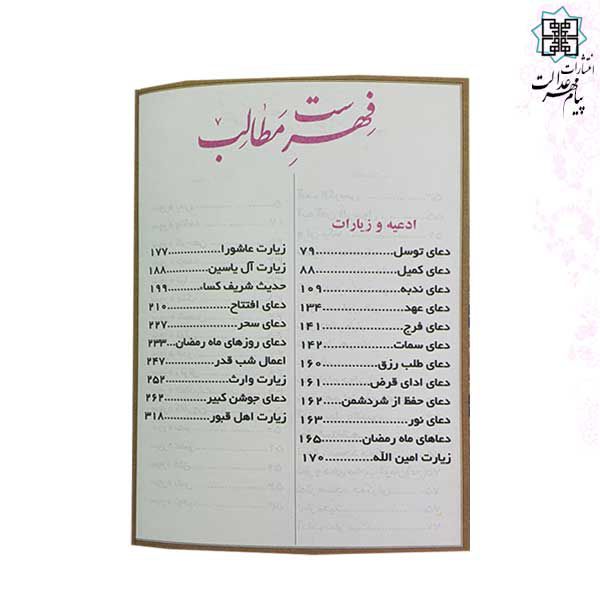 انتشارات
پیام مهر عدالت
فهرست مطالب ۷
ادعیه و زیارات
دعای توسل....................۷۹
دعای کمیل....................۸۸
دعای ندبه....................۱۰۹
دعای عهد....................۱۳۴
دعای فرج....................۱۴۱
دعای سمات....................۱۴۲
دعای طلب رزق...............۱۶۰
دعای ادای قرض..............۱۶۱
دعای حفظ از شردشمن.....۱۶۲
دعای نور....................۱۶۳
دعاهای ماه رمضان...........۱۶۵
زیارت امین الله...............۱۷۰
زیارت عاشورا...............۱۷۷
زیارت آل یاسین.............۱۸۸
حدیث شریف کساء.........۱۹۹
دعای افتتاح................۲۱۰
دعای سحر..................۲۲۷
دعای روزهای ماه رمضان...۲۳۳
اعمال شب قدر..............۲۴۷
زیارت وارث.................۲۵۲
دعای جوشن کبیر...........۲۶۲
زیارت اهل قبور.............۳۱۸